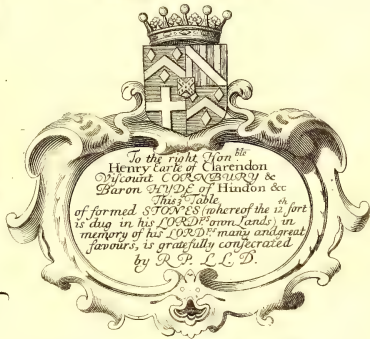 To the right Hon.ble
Henry Earle of Clarendon
Viscount CORNBURY &
Baron HYDE of Hindon &c
This 3d Table,
of formed STONES (whereof the 12th sort
is dug in his LORDPs own Lands) in
memory of his LORDPs many and great
favours, is gratefully consecrated
by R. P. L.L.D.